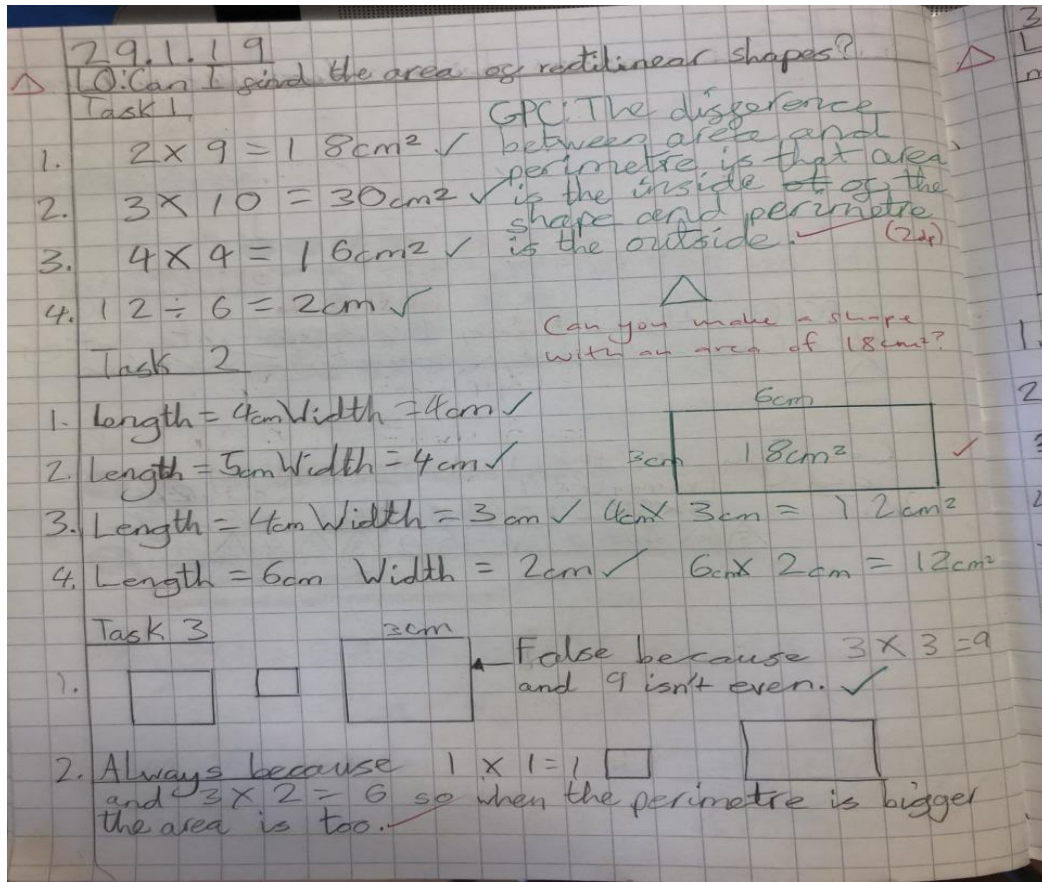 29.1.19
LO: Can I find the area of rectilinear shapes?
Task 1
1. 2 × 9 = 18cm² ✓
2. 3 × 10 = 30cm² ✓
3. 4 × 4 = 16cm² ✓
4. 12 ÷ 6 = 2cm ✓
GPC: The difference
between area and
perimetre is that area
is the inside of the
shape and perimetre
is the outside.
Can you make a shape
with an area of 18cm²?
Task 2
1. Length = 4cm Width = 4cm ✓
2. Length = 5cm Width = 4cm ✓
6cm
3cm 18cm² ✓
3. Length = 4cm Width = 3cm ✓ 4cm × 3cm = 12cm²
4. Length = 6cm Width = 2cm ✓ 6cm × 2cm = 12cm²
Task 3
3cm
1. False because 3 × 3 = 9
and 9 isn't even. ✓
2. Always because 1 × 1 = 1
and 3 × 2 = 6 so when the perimetre is bigger
the area is too.
3
L
1.
2